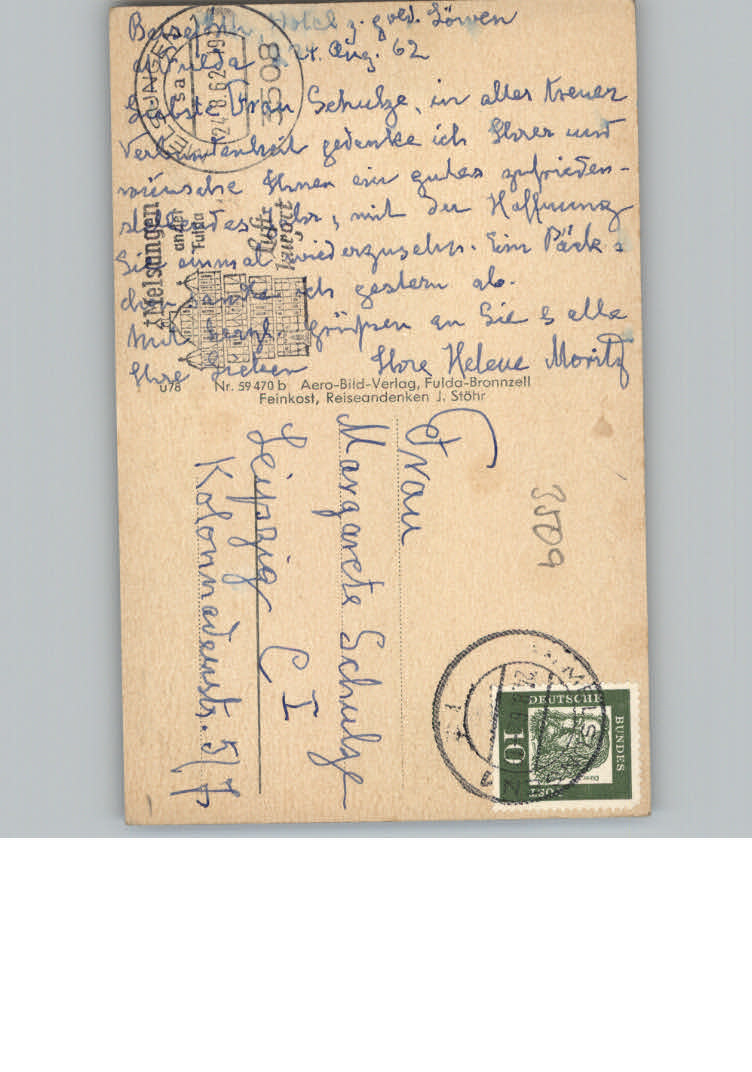 Hotel z. gold. Löwen
a. Fulda 24. Aug. 62
Liebste Frau Schulze, in alter Treue u.
Verbundenheit gedenke ich Ihrer und
wünsche Ihnen ein gutes zufrieden-
stellendes, mit der Hoffnung
Sie einmal wiederzusehn. Ein Päck-
chen sandte ich gestern ab.
Mit herzl. Grüßen an Sie & alle
Ihre Lieben Ihre Helene Moritz
MELSUNGEN
24.8.62
3508
Melsungen
an der
Fulda
Luft-
kurort
u78 Nr. 59 470 b Aero-Bild-Verlag, Fulda-Bronnzell
Feinkost, Reiseandenken J. Stöhr
Frau
Margarete Schulze
Leipzig C I
Kolonnadenstr. 5/7
3509
DEUTSCHE
BUNDES
POST
10